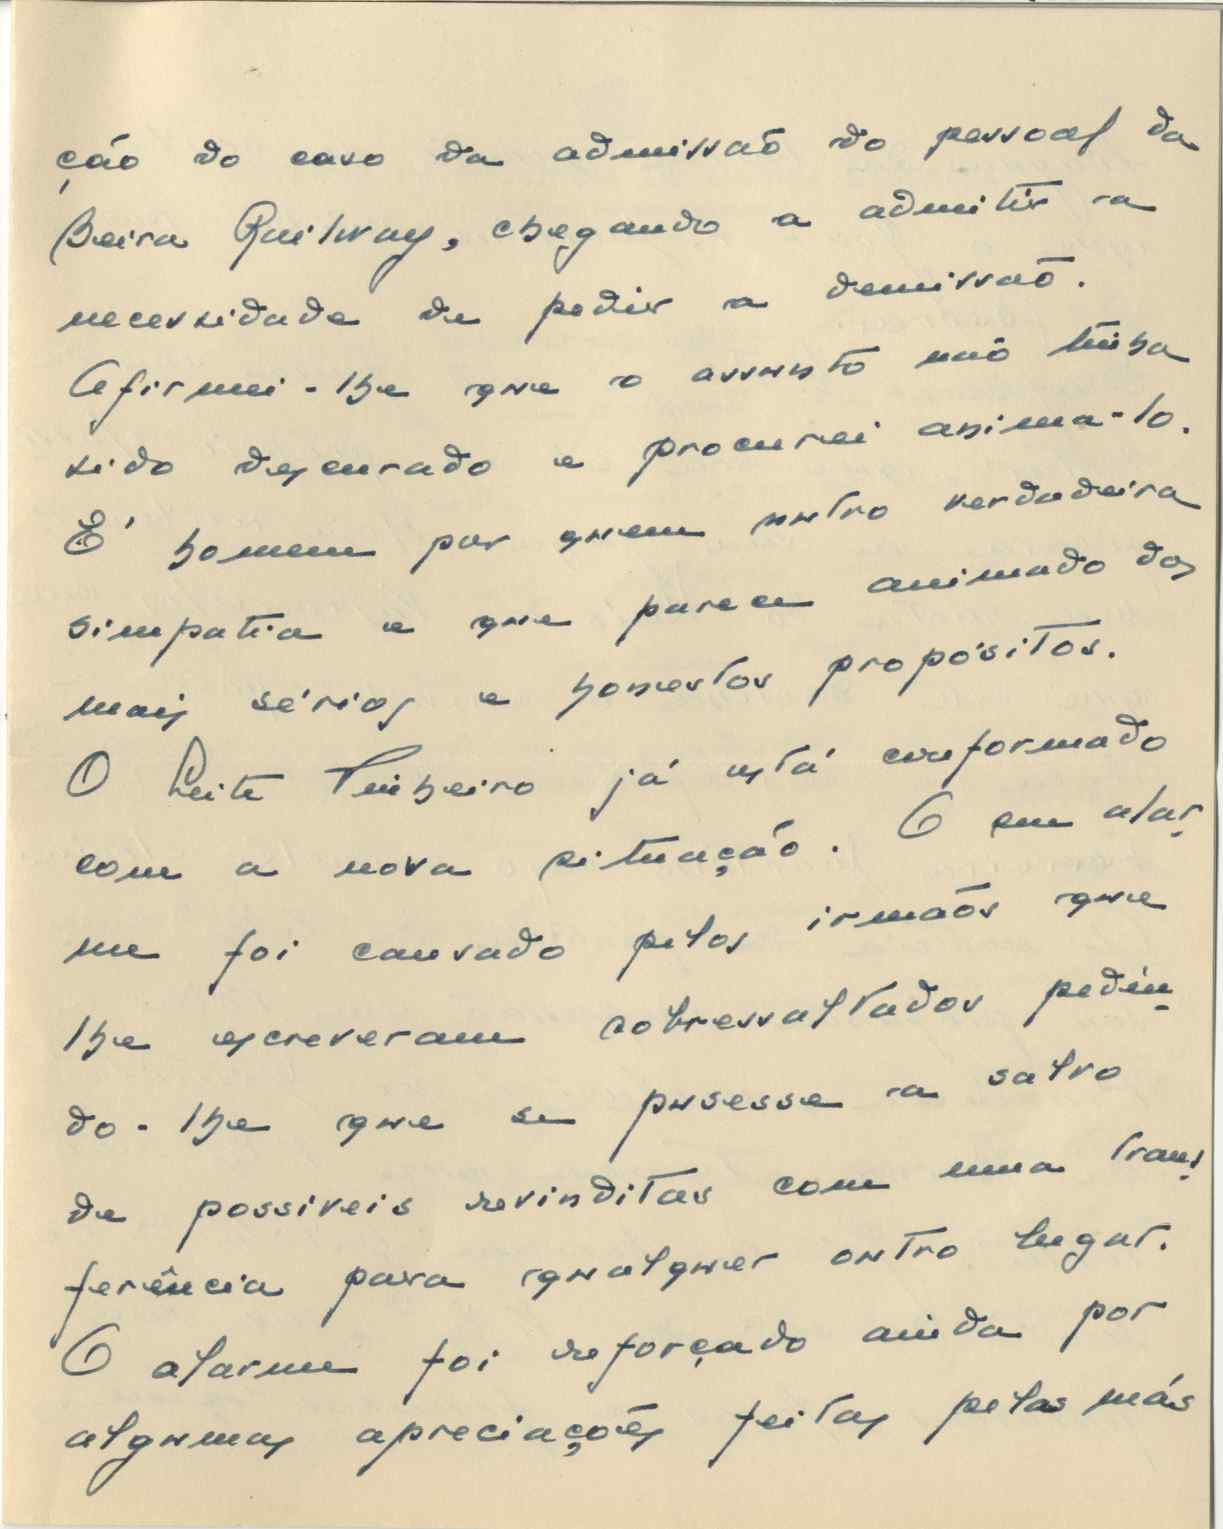 ção do caso da admissão do pessoal da
Beira Railway, chegando a admitir a
necessidade de pedir a demissão.
Afirmei-lhe que o assunto não tinha
sido descurado e procurei anima-lo.
É homem por quem nutro verdadeira
simpatia e que parece animado dos
mais sérios e honestos propósitos.
O Leite Pinheiro já está conformado
com a nova situação. O seu alar-
me foi causado pelos irmãos que
lhe escreveram sobressaltados pedin-
do-lhe que se pusesse a salvo
de possiveis revinditas com uma trans-
ferência para qualquer outro lugar.
O alarme foi reforçado ainda por
algumas apreciações feitas pelas más